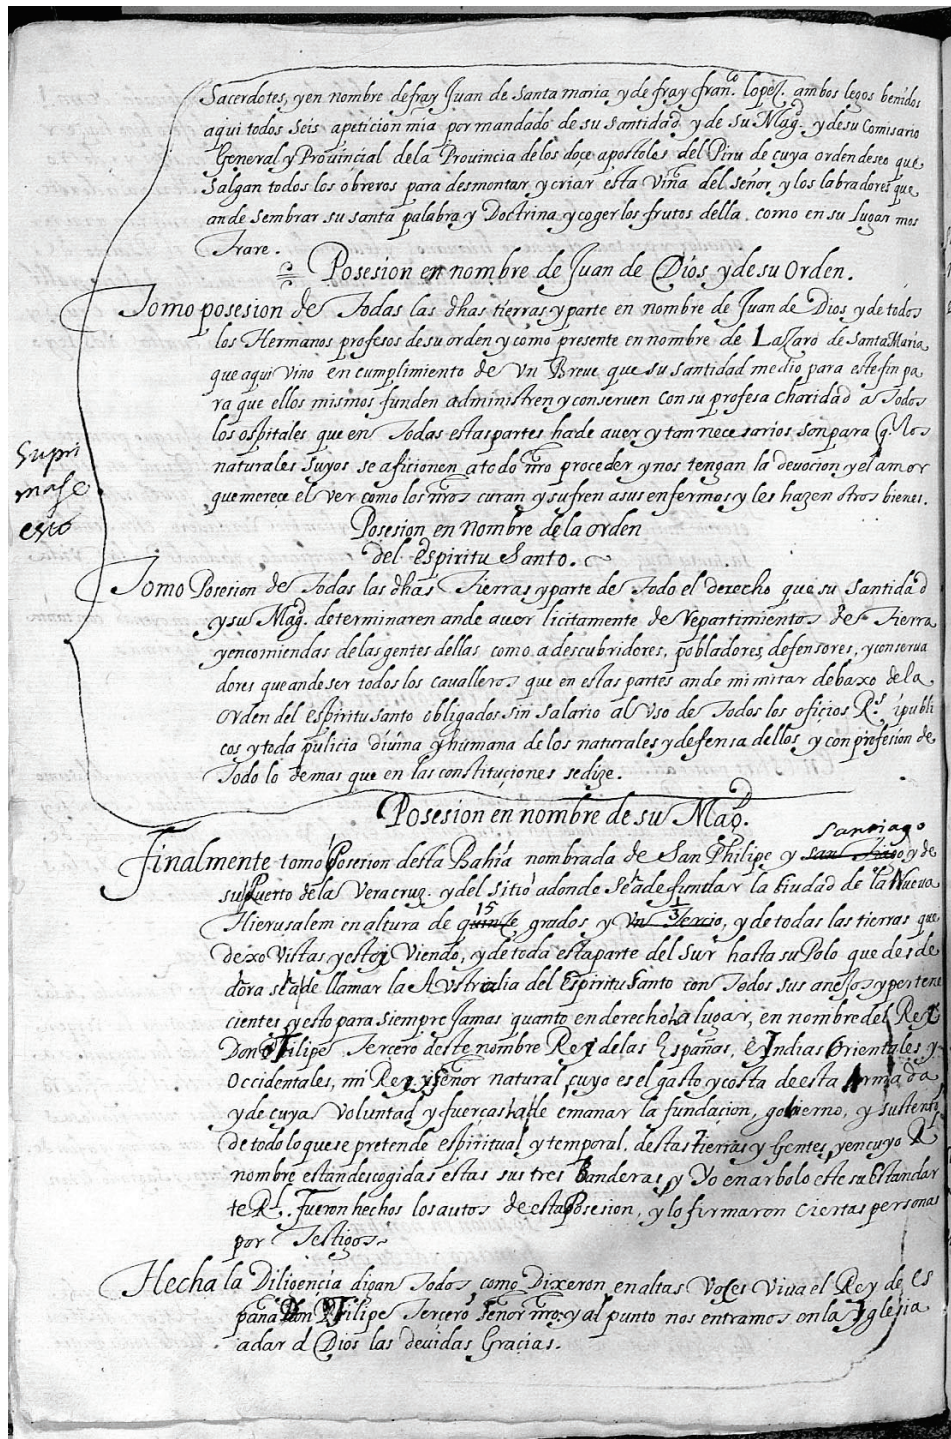 Sacerdotes, y en nombre de fray Juan de Santa maria y de fray fran.co Lopez. ambos legos benidos
aqui todos seis a peticion mia por mandado de su santidad y de su Magd. y de su Comisario
General y Provincial de la Provincia de los doce apostoles del Piru de cuya orden deseo que
salgan todos los obreros para desmontar y criar esta Viña del señor, y los labradores que
an de sembrar su santa palabra y Doctrina y coger los frutos della. como en su lugar mos
trare.
Posesion en nombre de Juan de Dios y de su orden.
Tomo posesion de Todas las dhas tierras y parte en nombre de Juan de Dios y de todos
los Hermanos profesos de su orden y como presente en nombre de Lazaro de Santa Maria
que aqui vino en cumplimiento de Vn Breue que su santidad me dio para este fin pa
ra que ellos mismos funden administren y conseruen con su profesa charidad a Todos
los ospitales que en Todas estas partes ha de auer y tan necesarios son para q. los
naturales suyos se aficionen a todo nro proceder y nos tengan la devocion y el amor
que merece el ver como los nros curan y sufren a sus enfermos y les hazen otros bienes.
Supri
mase
esto
Posesion en nombre de la orden
del Espiritu Santo.
Tomo Posesion de Todas las dhas Tierras y parte de Todo el derecho que su Santidad
y su Magd. determinaren an de auer licitamente de Repartimientos de Tierra
y encomiendas de las gentes dellas como a descubridores, pobladores, defensores, y conserva
dores que an de ser todos los cavalleros que en estas partes an de mi mitar debaxo de la
orden del espiritu santo obligados sin salario al Vso de Todos los oficios R.s ipubli
cos y toda pulicia diuina y humana de los naturales y defensa dellos y con profesion de
Todo lo demas que en las constituçiones se dize.
Posesion en nombre de su Magd.
Santiago
Finalmente tomo Posesion desta Bahia nombrada de San Philipe y san Tiago y de
su Puerto de la Veracruz. y del sitio adonde se ha de fundar la Ciudad de la Nueva
15 1/3
Hierusalem en altura de quinze grados y Vn Tercio, y de todas las tierras que
dexo Vistas y estoy Viendo, y de toda esta parte del Sur hasta su Polo que desde
dora se ha de llamar la Avstrialia del Espiritu Santo con Todos sus anejos y pertene
cientes y esto para siempre Jamas quanto en derecho ha lugar, en nombre del Rey
Don Filipe Tercero deste nombre Rey de las Españas, e Yndias Orientales y
Occidentales, mi Rey y Señor natural cuyo es el gasto y costa de esta Armada
y de cuya Voluntad y fuerças ha de emanar la fundaçion, gobierno, y sustento
de todo lo que se pretende espiritual y temporal. destas tierras y Gentes, y en cuyo R
nombre estan descogidas estas sus tres Banderas, y Yo enarbolo este su Estandar
te Rl. Fueron hechos los autos de esta Posesion, y lo firmaron ciertas personas
por Testigos.
Hecha la Diligençia digan Todos, como Dixeron en altas Voces Viua el Rey de Es
paña Don Filipe Tercero Señor nro. y al punto nos entramos en la Yglesia
a dar a Dios las deuidas Gracias.